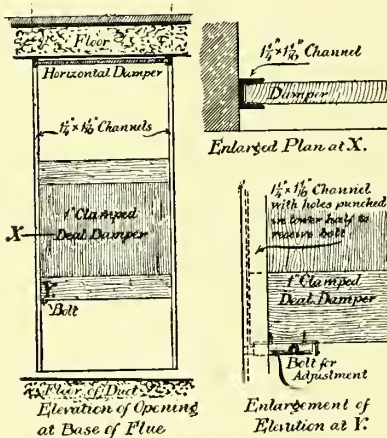 Floor
Horizontal Damper
1¼" × 1⅟₁₆" Channels
X
1" Clamped
Deal Damper
Y
Bolt
Floor of Duct
Elevation of Opening
at Base of Flue
1¼" × 1⅟₁₆" Channel
Damper
Enlarged Plan at X.
1¼" × 1⅟₁₆" Channel
with holes punched
in lower half to
receive bolt
1" Clamped
Deal Damper
Bolt for
Adjustment
Enlargement of
Elevation at Y.